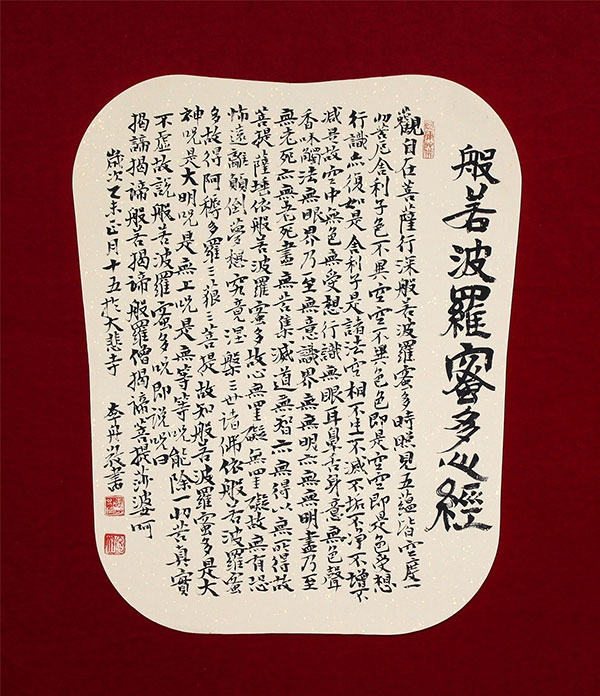 般若波羅蜜多心經
觀自在菩薩行深般若波羅蜜多時照見五蘊皆空度一
切苦厄舍利子色不異空空不異色色即是空空即是色受想
行識亦復如是舍利子是諸法空相不生不滅不垢不淨不增不
減是故空中無色無受想行識無眼耳鼻舌身意無色聲
香味觸法無眼界乃至無意識界無無明亦無無明盡乃至
無老死亦無老死盡無苦集滅道無智亦無得以無所得故
菩提薩埵依般若波羅蜜多故心無罣礙無罣礙故無有恐
怖遠離顛倒夢想究竟涅槃三世諸佛依般若波羅蜜
多故得阿耨多羅三藐三菩提故知般若波羅蜜多是大
神呪是大明呪是無上呪是無等等呪能除一切苦真實
不虛故說般若波羅蜜多呪即說呪曰
揭諦揭諦般若揭諦般羅僧揭諦菩提莎婆呵
歲次乙未正月十五扵大悲寺 李丹書